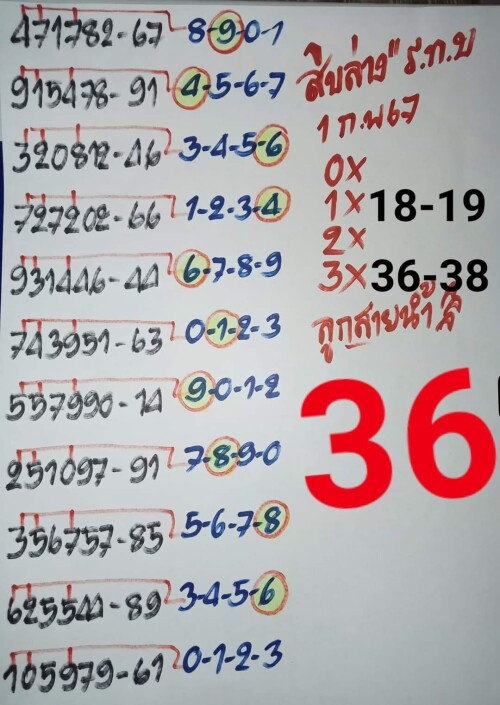 471782-67 8-9-0-1
915478-91 4-5-6-7
320812-46 3-4-5-6
727202-66 1-2-3-4
931446-44 6-7-8-9
743951-63 0-1-2-3
557990-14 9-0-1-2
251097-91 7-8-9-0
356757-85 5-6-7-8
625544-89 3-4-5-6
105979-61 0-1-2-3
สิบล่าง" ร.ท.บ
1 ก.พ67
0x
1x 18-19
2x
3x 36-38
ลูกสายน้ำลี
36